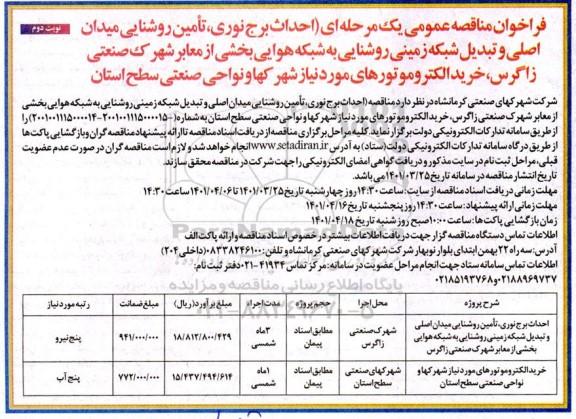 نوبت دوم
فراخوان مناقصه عمومی یک مرحله ای (احداث برج نوری، تأمین روشنایی میدان
اصلی و تبدیل شبکه زمینی روشنایی به شبکه هوایی بخشی از معابر شهرک صنعتی
زاگرس، خرید الکترو موتورهای مورد نیاز شهرکها و نواحی صنعتی سطح استان
شرکت شهرکهای صنعتی کرمانشاه در نظر دارد مناقصه (احداث برج نوری، تأمین روشنایی میدان اصلی و تبدیل شبکه زمینی روشنایی به شبکه هوایی بخشی
از معابر شهرک صنعتی زاگرس، خرید الکترو موتورهای مورد نیاز شهرکها و نواحی صنعتی سطح استان به شماره (۲۰۰۱۰۰۱۱۱۵۰۰۰۰۱۵-۲۰۰۱۰۰۱۱۱۵۰۰۰۰۱۴) را
از طریق سامانه تدارکات الکترونیکی دولت برگزار نماید. کلیه مراحل برگزاری مناقصه از دریافت اسناد مناقصه تا ارائه پیشنهاد مناقصه گران و بازگشایی پاکت ها
از طریق درگاه سامانه تدارکات الکترونیکی دولت (ستاد) به آدرس www.setadiran.ir انجام خواهد شد و لازم است مناقصه گران در صورت عدم عضویت
قبلی، مراحل ثبت نام در سایت مذکور و دریافت گواهی امضای الکترونیکی را جهت شرکت در مناقصه محقق سازند.
تاریخ انتشار مناقصه در سامانه تاریخ ۱۴۰۱/۰۳/۲۵ می باشد.
مهلت زمانی دریافت اسناد مناقصه از سایت: ساعت ۱۴:۳۰ روز چهارشنبه تاریخ ۱۴۰۱/۰۳/۲۵ تا ۱۴۰۱/۰۴/۰۶ ساعت ۱۴:۳۰
مهلت زمانی ارائه پیشنهاد: ساعت ۱۴:۳۰ روز پنجشنبه تاریخ ۱۴۰۱/۰۴/۱۶
زمان بازگشایی پاکت ها: ساعت ۱۰:۰۰ صبح روز شنبه تاریخ ۱۴۰۱/۰۴/۱۸
اطلاعات تماس دستگاه مناقصه گزار جهت دریافت اطلاعات بیشتر در خصوص اسناد مناقصه و ارائه پاکت الف
آدرس: سه راه ۲۲ بهمن ابتدای بلوار نوبهار شرکت شهرکهای صنعتی کرمانشاه و تلفن: ۰۸۳۳۸۲۴۶۱۰۰ (داخلی ۲۰۴)
اطلاعات تماس سامانه ستاد جهت انجام مراحل عضویت در سامانه: مرکز تماس ۴۱۹۳۴-۰۲۱ دفتر ثبت نام:
۰۲۱۸۸۹۶۹۷۳۷ و ۰۲۱۸۵۱۹۳۷۶۸
شرح پروژه محل اجرا حجم پروژه مدت اجراء مبلغ برآورد (ریال) مبلغ ضمانت رتبه مورد نیاز
احداث برج نوری، تأمین روشنایی میدان اصلی و تبدیل شبکه زمینی روشنایی به شبکه هوایی بخشی از معابر شهرک صنعتی زاگرس شهرک صنعتی زاگرس مطابق اسناد پیمان ۳ ماه شمسی ۱۸/۸۱۲/۸۰۰/۴۲۹ ۹۴۱/۰۰۰/۰۰۰ پنج نیرو
خرید الکترو موتورهای مورد نیاز شهرکها و نواحی صنعتی سطح استان شهرکهای صنعتی سطح استان مطابق اسناد پیمان ۱ ماه شمسی ۱۵/۴۳۷/۴۹۴/۶۱۴ ۷۷۲/۰۰۰/۰۰۰ پنج آب
پایگاه اطلاع رسانی مناقصه و مزایده